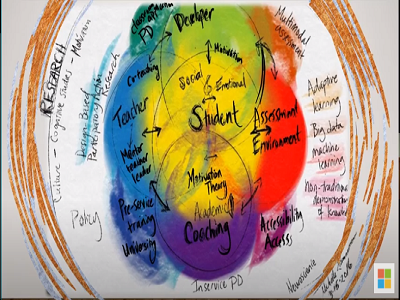 classroom
PD
Developer
Multimodal
assessment
RESEARCH
Culture - Cognitive Studies - Motivation
Design-Based
Participatory Action Research
Co-teaching
Motivation
Social
Emotional
Student
Teacher
Assessment
Environment
Adaptive
learning
Big data
machine
learning
Non-traditional
demonstration
of knowledge
Mentor
teacher
leader
Motivation
Theory
Academic
Coaching
Policy
Pre-service
training
University
Accessibility
Access
Inservice PD
Neuroscience